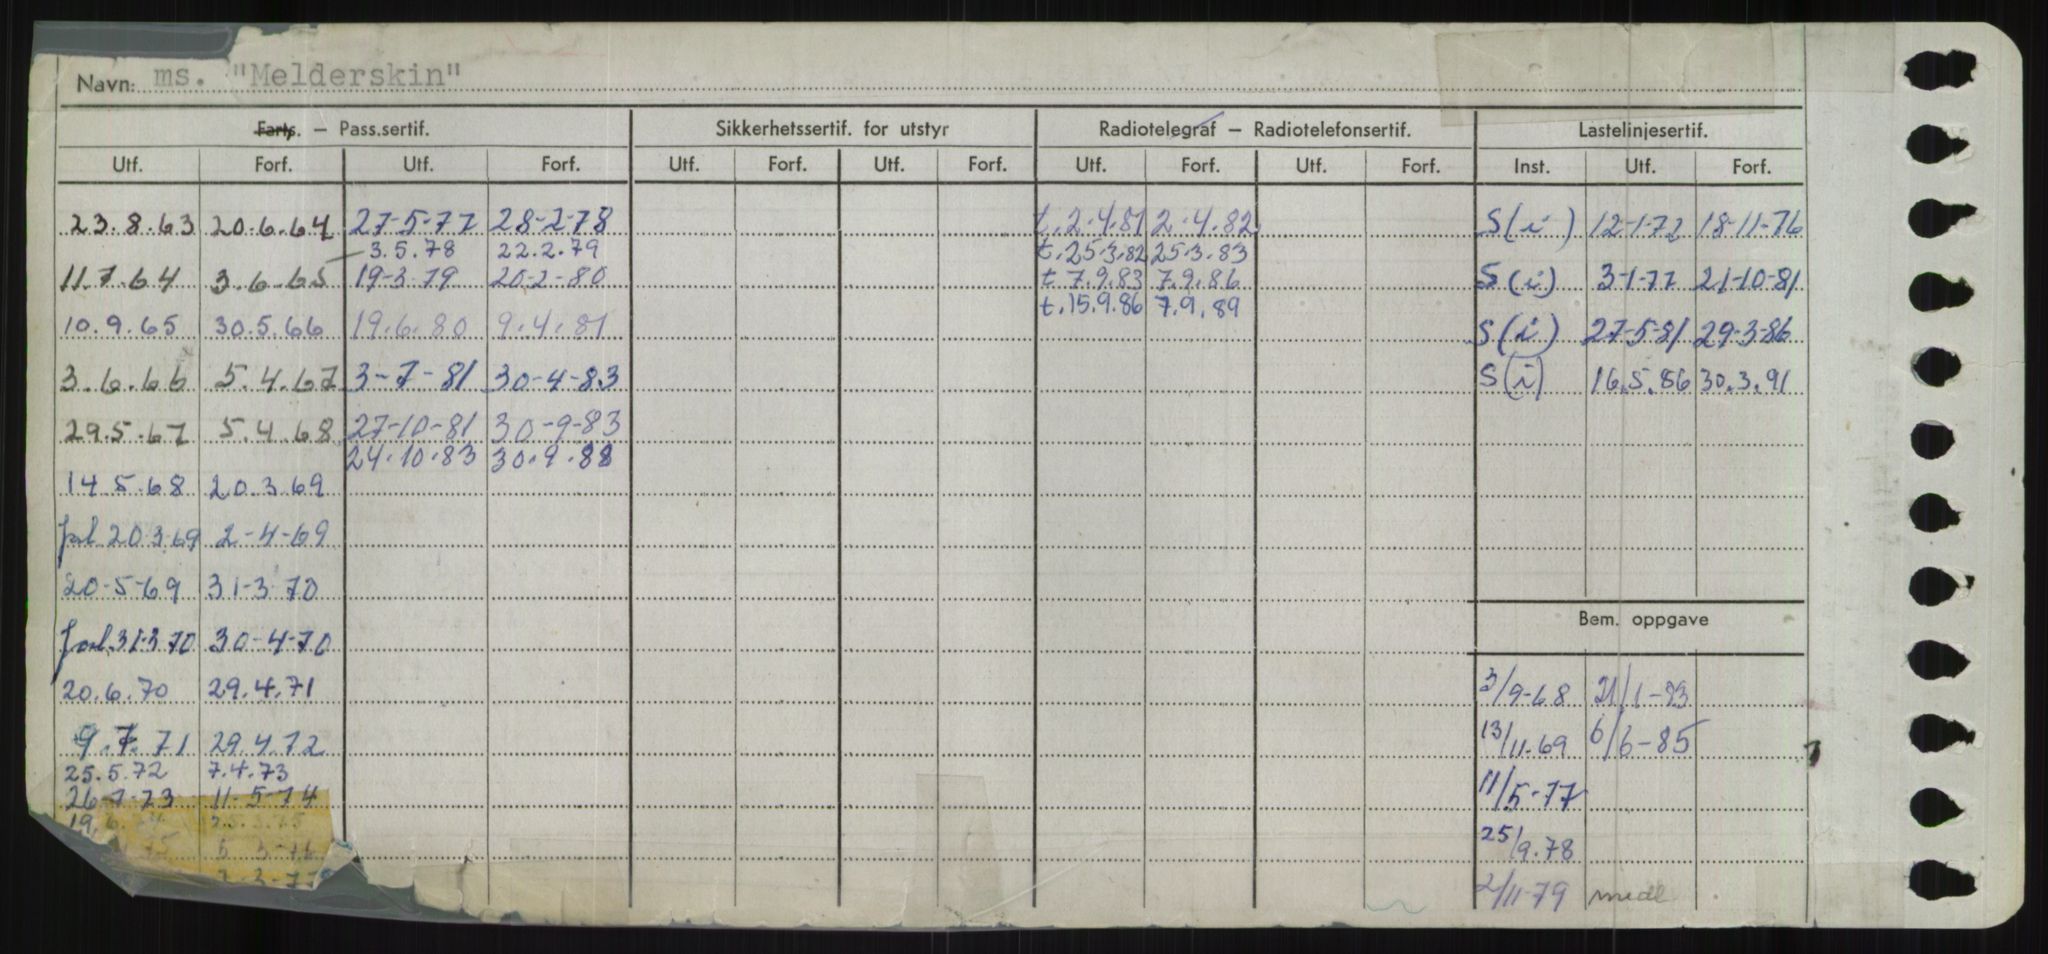 Navn: ms. "Melderskin"
Farts. — Pass.sertif. Sikkerhetssertif. for utstyr Radiotelegraf — Radiotelefonsertif. Lastelinjesertif.
Utf. Forf. Utf. Forf. Utf. Forf. Utf. Forf. Utf. Forf. Utf. Forf. Inst. Utf. Forf.
23.8.63 20.6.64 27-5-77 28-2-78 t.2.4.81 2.4.82 S(i) 12-1-72 18-11-76
3.5.78 22.2.79 t.25.3.82 25.3.83
11.7.64 3.6.65 19-3-79 20-2-80 t 7.9.83 7.9.86 S(i) 3-1-77 21-10-81
t.15.9.86 7.9.89
10.9.65 30.5.66 19.6.80 9.4.81 S(i) 27-5-81 29-3-86
3.6.66 5.4.67 3-7-81 30-4-83 S(i) 16.5.86 30.3.91
29.5.67 5.4.68 27-10-81 30-9-83
24.10.83 30.9.88
14.5.68 20.3.69
forl 20.3.69 2-4-69
20-5-69 31-3-70
Bem. oppgave
forl.31-3-70 30-4-70
20.6.70 29.4.71 3/9-68 21/1-83
9.7.71 29.4.72 13/11-69 6/6-85
25.5.72 7.4.73
26-7-73 11-5-74 11/5-77
19.6. 25.3.75
75 5 3-76 25/9.78
2-3-77 2/11-79 medl